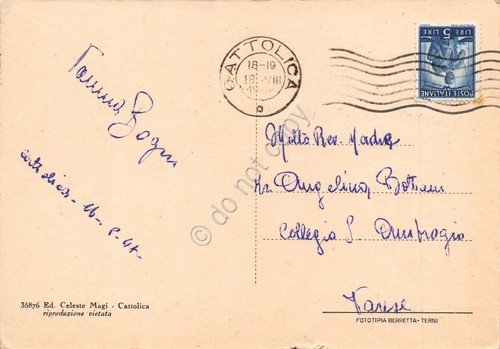 CATTOLICA
18-19
18. VIII
POSTE ITALIANE
LIRE 5 LIRE
Bagni
Cattolica - 16-8-47-
Molto Rev. Madre
Angelina Bottini
Collegio S. Ambrogio
Varese
35876 Ed. Celeste Magi - Cattolica
riproduzione vietata
FOTOTIPIA BERRETTA - TERNI
do not copy